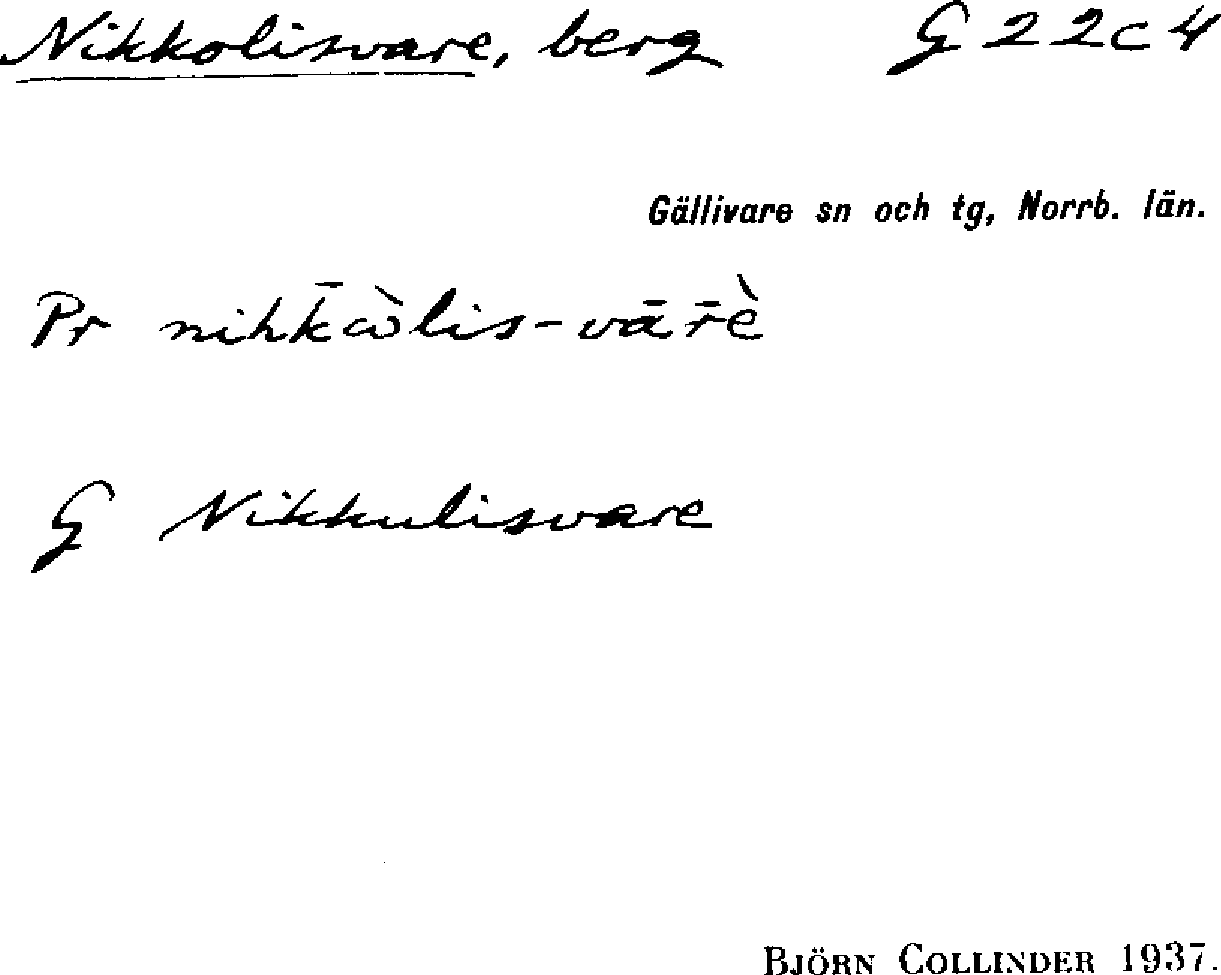 Nikkolisvare, berg G 22c4
Gällivare sn och tg, Norrb. län.
Pr nihk̄ὼlis-vār̄è
G Nikkulisvare
BJÖRN COLLINDER 1937.